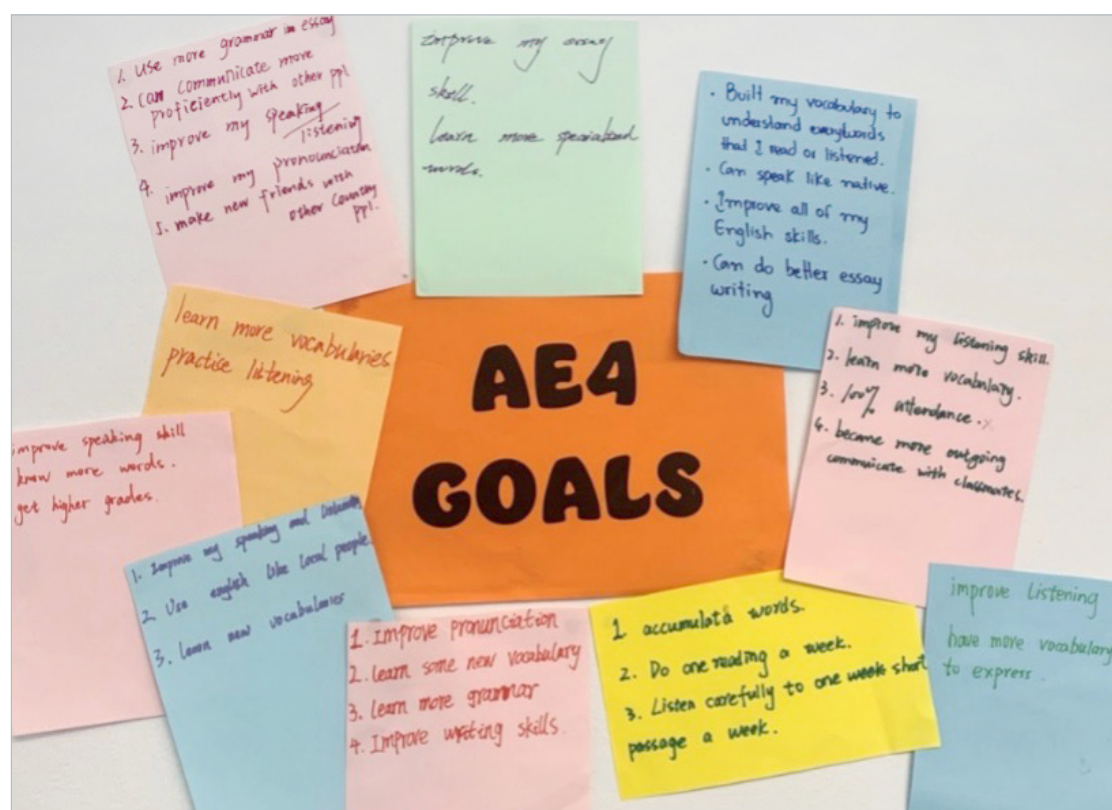 1. Use more grammar in essay
2. Can communicate more
proficiently with other ppl
3. improve my speaking
listening
4. improve my pronounciation
5. make new friends with
other country
ppl.
improve my
skill.
learn more
words.
• Built my vocabulary to
understand everywords
that I read or listened.
• Can speak like native.
• Improve all of my
English skills.
• Can do better essay
writing
learn more vocabularies
practise listening
AE4
GOALS
1. improve my listening skill.
2. learn more vocabulary.
3. 100% attendance.
%
4. become more outgoing
commuicate with classmates.
improve speaking skill
know more words.
get higher grades.
1. Improve my speaking and listening
2. Use english like local people.
3. Learn new vocabularies
1. Improve pronunciation
2. Learn some new vocabulary
3. learn more grammar
4. Improve writing skills.
1 accumulata words.
2. Do one reading a week.
3. Listen carefully to one week short
passage a week.
improve Listening
have more vocabulary
to express.